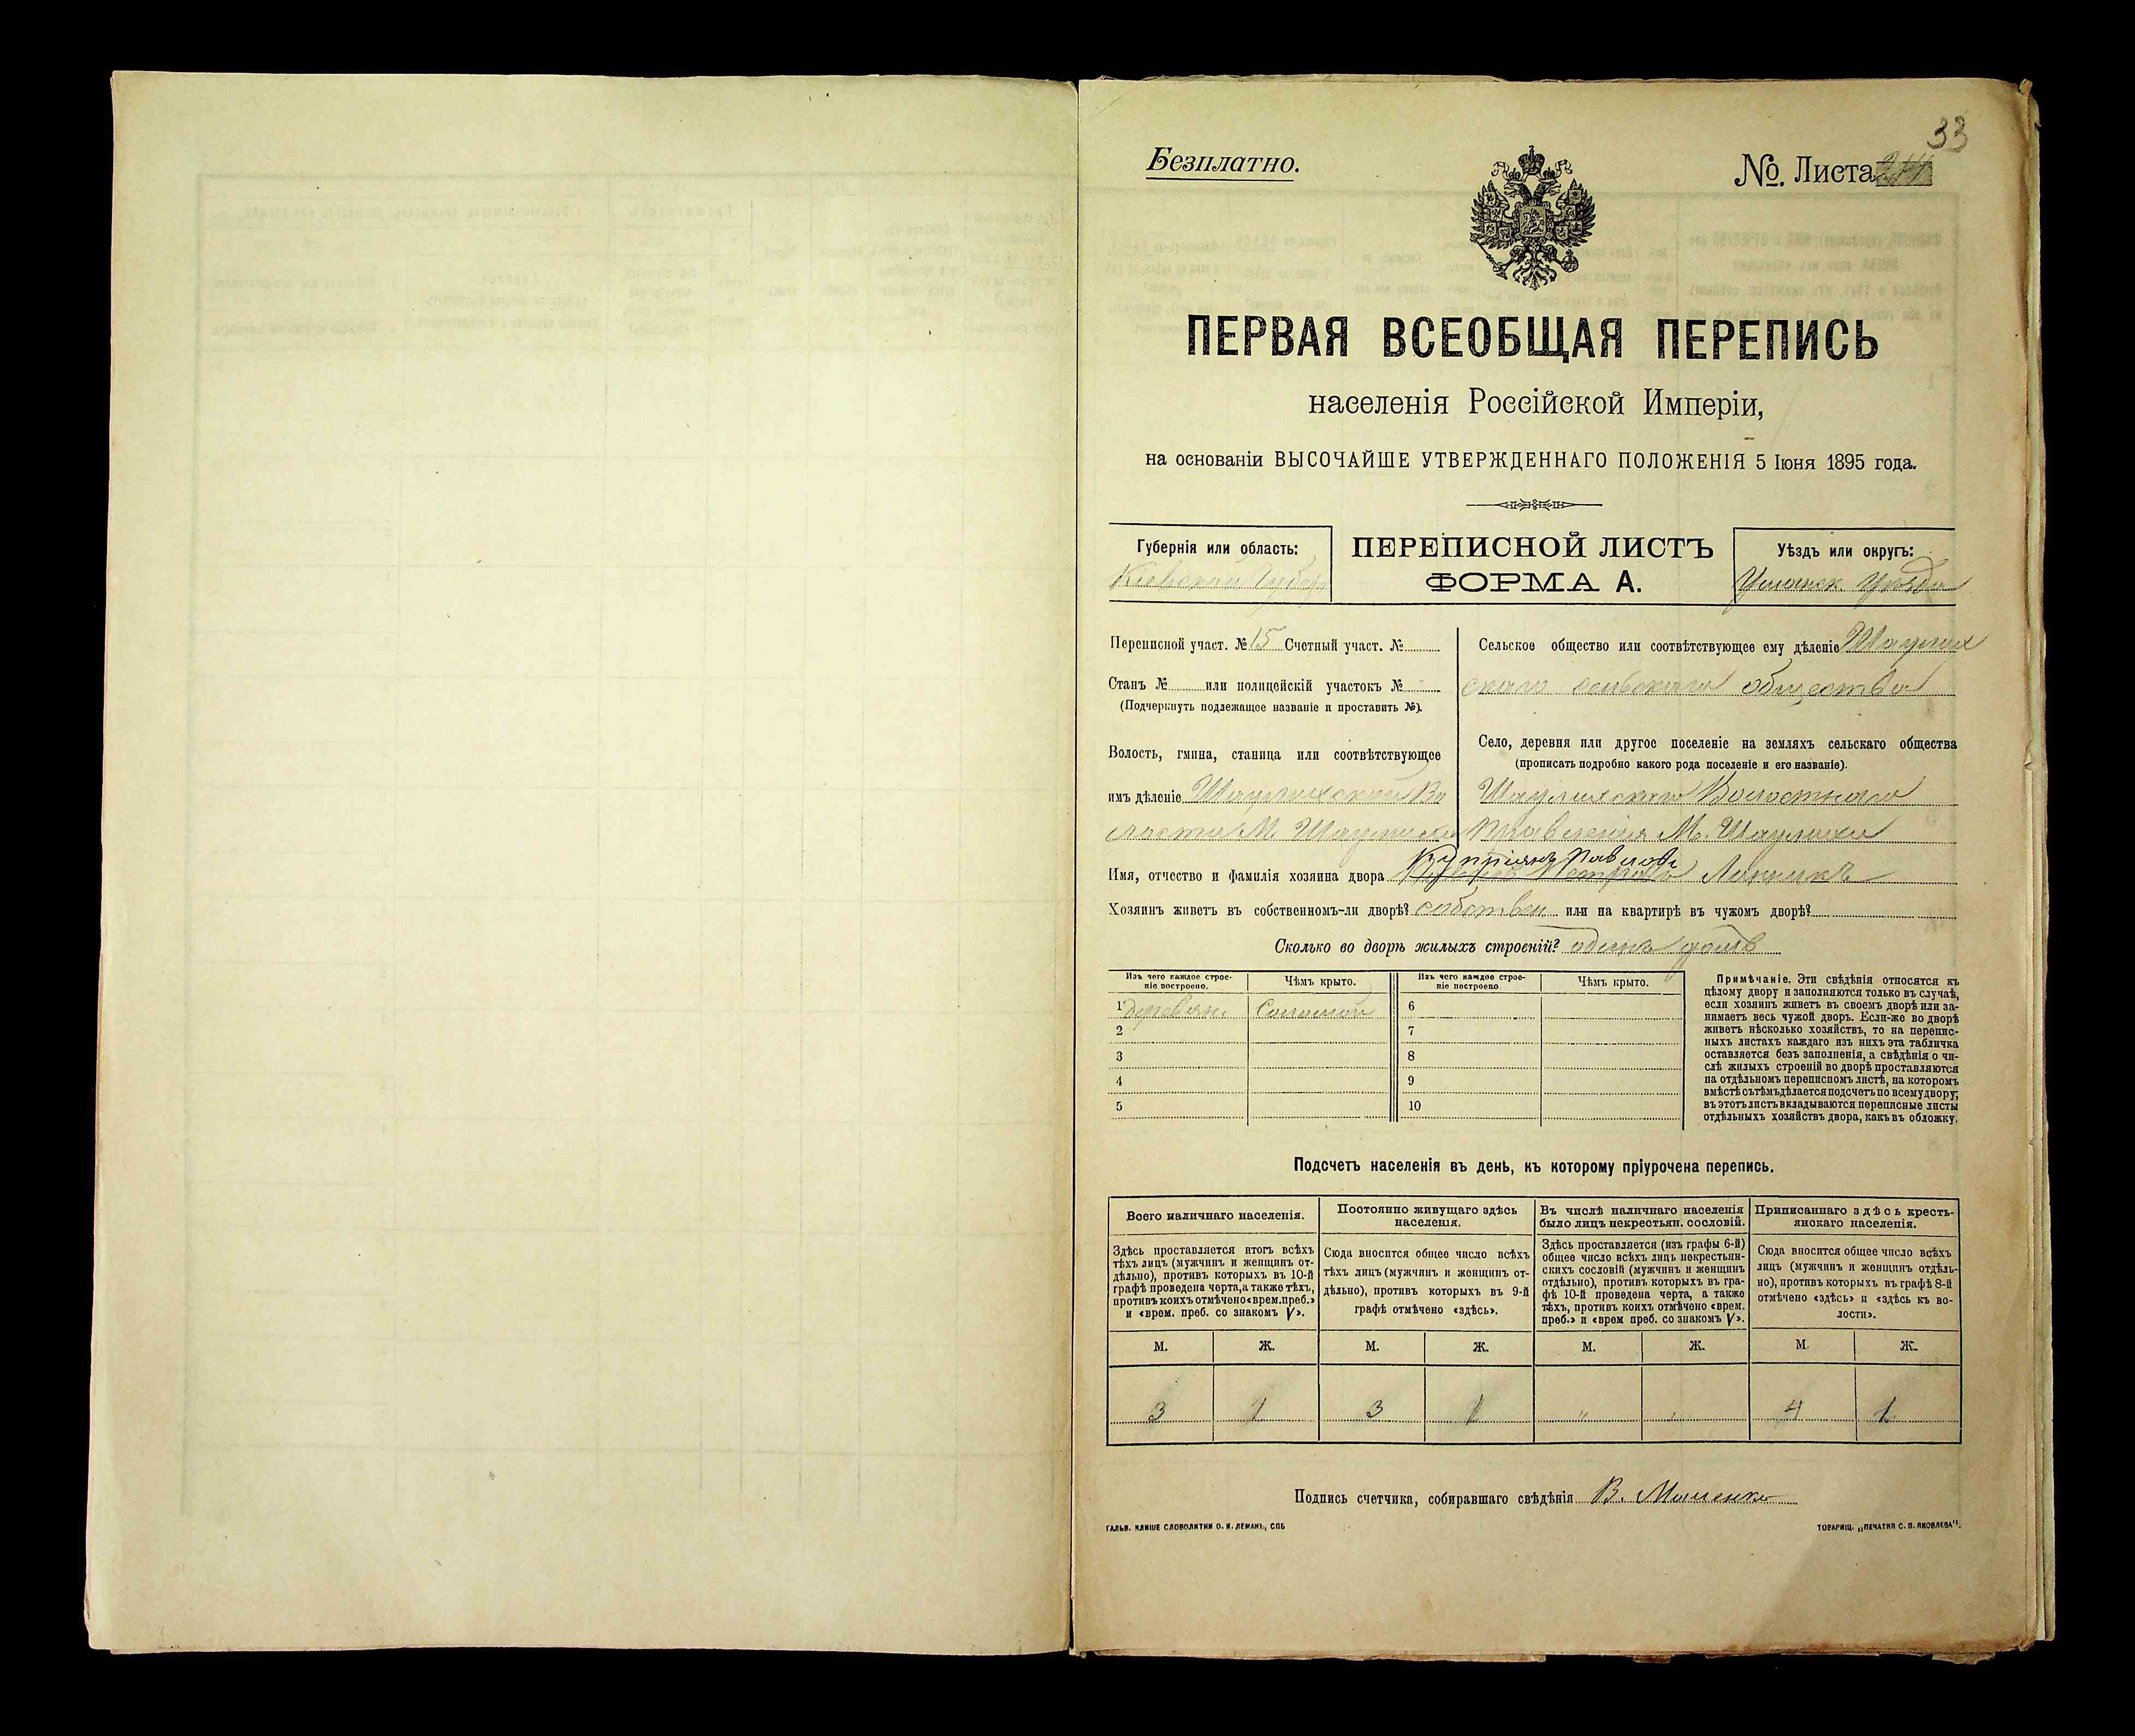 33
Безплатно.
№. Листа
ПЕРВАЯ ВСЕОБЩАЯ ПЕРЕПИСЬ
населенія Россійской Имперіи,
на основаніи ВЫСОЧАЙШЕ УТВЕРЖДЕННАГО ПОЛОЖЕНІЯ 5 Іюня 1895 года.
Губернія или область:
Кіевской Губер
ПЕРЕПИСНОЙ ЛИСТЪ
ФОРМА А.
Уѣздъ или округъ:
Уманск. Уѣзда
Переписной участ. № 15 Счетный участ. №
Станъ № или полицейскій участокъ №
(Подчеркнуть подлежащее названіе и проставить №).
Волость, гмина, станица или соотвѣтствующее
имъ дѣленіе Шаулихской Во
лости М. Шаулихи
Сельское общество или соотвѣтствующее ему дѣленіе Шаулих
скаго сельскаго общества
Село, деревня или другое поселеніе на земляхъ сельскаго общества
(прописать подробно какого рода поселеніе и его названіе).
Шаулихскаго Волостнаго
Правленія М. Шаулихи
Купріянъ Павловъ
Имя, отчество и фамилія хозяина двора
Хозяинъ живетъ въ собственномъ-ли дворѣ? собствен или на квартирѣ въ чужомъ дворѣ?
Сколько во дворѣ жилыхъ строеній? одинъ домъ
Изъ чего каждое строе-
ніе построено.
Чѣмъ крыто.
Изъ чего каждое строе-
ніе построено
Чѣмъ крыто.
1 деревян. Соломой 6
2 7
3 8
4 9
5 10
Примѣчаніе. Эти свѣдѣнія относятся къ
цѣлому двору и заполняются только въ случаѣ,
если хозяинъ живетъ въ своемъ дворѣ или за-
нимаетъ весь чужой дворъ. Если-же во дворѣ
живетъ нѣсколько хозяйствъ, то на перепис-
ныхъ листахъ каждаго изъ нихъ эта табличка
оставляется безъ заполненія, а свѣдѣнія о чи-
слѣ жилыхъ строеній во дворѣ проставляются
на отдѣльномъ переписномъ листѣ, на которомъ
вмѣстѣ съ тѣмъ дѣлается подсчетъ по всему двору;
въ этотъ листъ вкладываются переписные листы
отдѣльныхъ хозяйствъ двора, какъ въ обложку.
Подсчетъ населенія въ день, къ которому пріурочена перепись.
Всего наличнаго населенія.
Здѣсь проставляется итогъ всѣхъ
тѣхъ лицъ (мужчинъ и женщинъ от-
дѣльно), противъ которыхъ въ 10-й
графѣ проведена черта, а также тѣхъ,
противъ коихъ отмѣчено «врем. преб.»
и «врем. преб. со знакомъ V».
Постоянно живущаго здѣсь
населенія.
Сюда вносится общее число всѣхъ
тѣхъ лицъ (мужчинъ и женщинъ от-
дѣльно), противъ которыхъ въ 9-й
графѣ отмѣчено «здѣсь».
Въ числѣ наличнаго населенія
было лицъ некрестьян. сословій.
Здѣсь проставляется (изъ графы 6-й)
общее число всѣхъ лицъ некрестьян-
скихъ сословій (мужчинъ и женщинъ
отдѣльно), противъ которыхъ въ гра-
фѣ 10-й проведена черта, а также
тѣхъ, противъ коихъ отмѣчено «врем.
преб.» и «врем преб. со знакомъ V».
Приписаннаго здѣсь кресть-
янскаго населенія.
Сюда вносится общее число всѣхъ
лицъ (мужчинъ и женщинъ отдѣль-
но), противъ которыхъ въ графѣ 8-й
отмѣчено «здѣсь» и «здѣсь въ во-
лости».
М. Ж. М. Ж. М. Ж. М. Ж.
3 1 3 1 " " 4 1
Подпись счетчика, собиравшаго свѣдѣнія В.
ГАЛЬВ. КЛИШЕ СЛОВОЛИТНИ О. И. ЛЕМАНЪ, СПБ
ТОВАРИЩ. „ПЕЧАТНЯ С. П. ЯКОВЛЕВА".